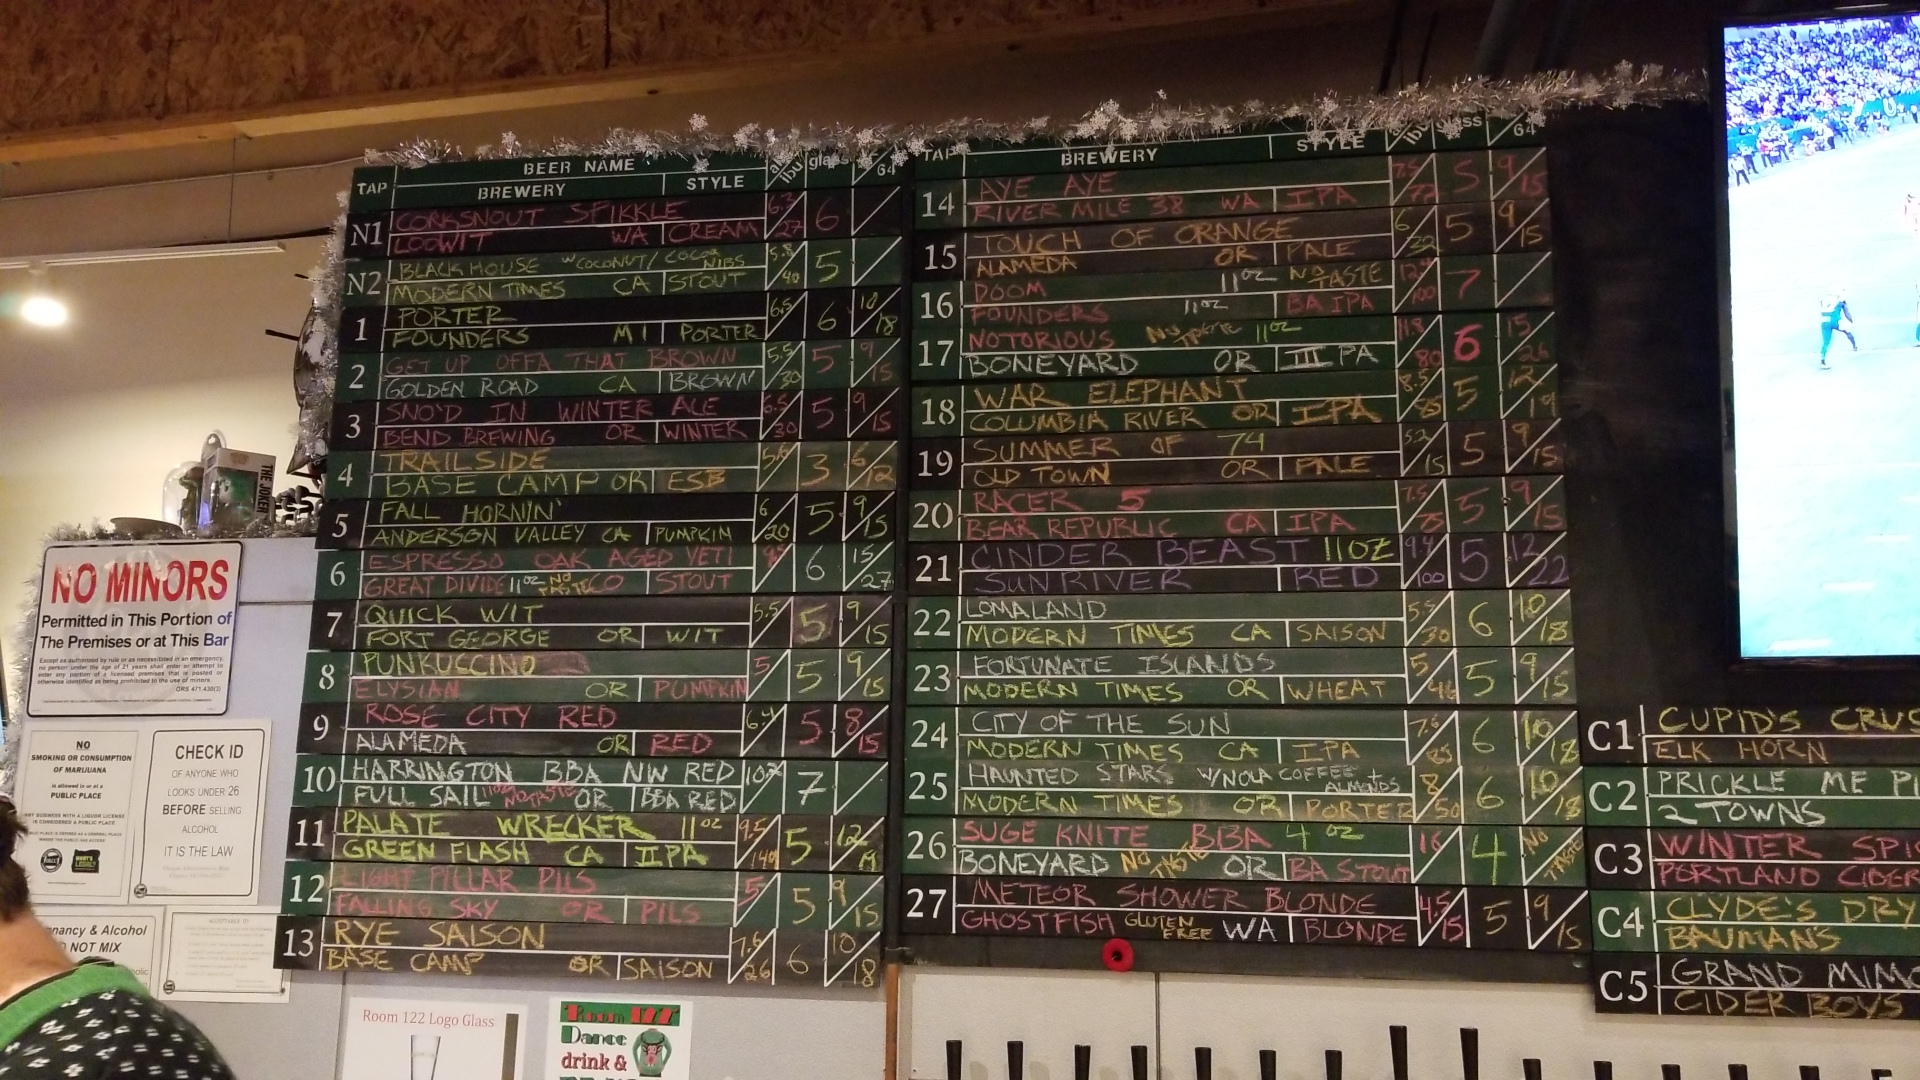 BEER NAME
TAP BREWERY STYLE ibu glass 64
N1 CORKSNOUT SPIKKLE 6.3 6
LOOWIT WA CREAM 27
N2 BLACK HOUSE W COCONUT/ COCOA NIBS 5.8 5
MODERN TIMES CA STOUT 40
1 PORTER 6.5 6 10
FOUNDERS MI PORTER 18
2 GET UP OFFA THAT BROWN 5.5 5 9
GOLDEN ROAD CA BROWN 30 15
3 SNO'D IN WINTER ALE 6.5 5 9
BEND BREWING OR WINTER 30 15
4 TRAILSIDE 5.6 3 6
BASE CAMP OR ESB 12
5 FALL HORNIN' 6 5 9
ANDERSON VALLEY CA PUMPKIN 20 15
6 ESPRESSO OAK AGED YETI 6 15
GREAT DIVIDE 11oz NO TASTE CO STOUT 27
7 QUICK WIT 5.5 5 9
FORT GEORGE OR WIT 15
8 PUNKUCCINO 5 5 9
ELYSIAN OR PUMPKIN 15
9 ROSE CITY RED 6.4 5 8
ALAMEDA OR RED 15
10 HARRINGTON BBA NW RED 7
FULL SAIL 11oz NO TASTE OR BBA RED
11 PALATE WRECKER 11oz 9.5 5 12
GREEN FLASH CA IIPA 149
12 LIGHT PILLAR PILS 5 5 9
FALLING SKY OR PILS 15
13 RYE SAISON 7.6 6 10
BASE CAMP OR SAISON 26 18
TAP BREWERY STYLE ibu glass 64
14 AYE AYE 7.5 5 9
RIVER MILE 38 WA IPA 72 15
15 TOUCH OF ORANGE 6 5 9
ALAMEDA OR PALE 32 15
16 DOOM 11oz NO TASTE 12.4 7
FOUNDERS 11oz BA IPA 100
17 NOTORIOUS NO TASTE 11oz 11.8 6 15
BONEYARD OR III PA 80 26
18 WAR ELEPHANT 8.5 5 12
COLUMBIA RIVER OR IPA 85 19
19 SUMMER OF 74 5.2 5 9
OLD TOWN OR PALE 15 15
20 RACER 5 7.5 5 9
BEAR REPUBLIC CA IPA 75 15
21 CINDER BEAST 11OZ 9.4 5 12
SUNRIVER RED 100 22
22 LOMALAND 5.5 6 10
MODERN TIMES CA SAISON 30 18
23 FORTUNATE ISLANDS 5 5 9
MODERN TIMES OR WHEAT 46 15
24 CITY OF THE SUN 7.5 6 10
MODERN TIMES CA IPA 85 18
25 HAUNTED STARS W/NOLA COFFEE + ALMONDS 8 6 10
MODERN TIMES OR PORTER 50 18
26 SUGE KNITE BBA 4 oz 16 4 NO TASTE
BONEYARD NO TASTE OR BA STOUT
27 METEOR SHOWER BLONDE 4.5 5 9
GHOSTFISH GLUTEN FREE WA BLONDE 15 15
C1 CUPID'S CRUS
ELK HORN
C2 PRICKLE ME PI
2 TOWNS
C3 WINTER SPI
PORTLAND CIDER
C4 CLYDE'S DRY
BAUMAN'S
C5 GRAND MIMO
CIDER BOYS
THE JOKER
NO MINORS
Permitted in This Portion of
The Premises or at This Bar
ORS 471.430(3)
NO
SMOKING OR CONSUMPTION
OF MARIJUANA
is allowed in or at a
PUBLIC PLACE
CHECK ID
OF ANYONE WHO
LOOKS UNDER 26
BEFORE SELLING
ALCOHOL
IT IS THE LAW
nancy & Alcohol
NOT MIX
Room 122 Logo Glass
Room 122
Dance
drink &